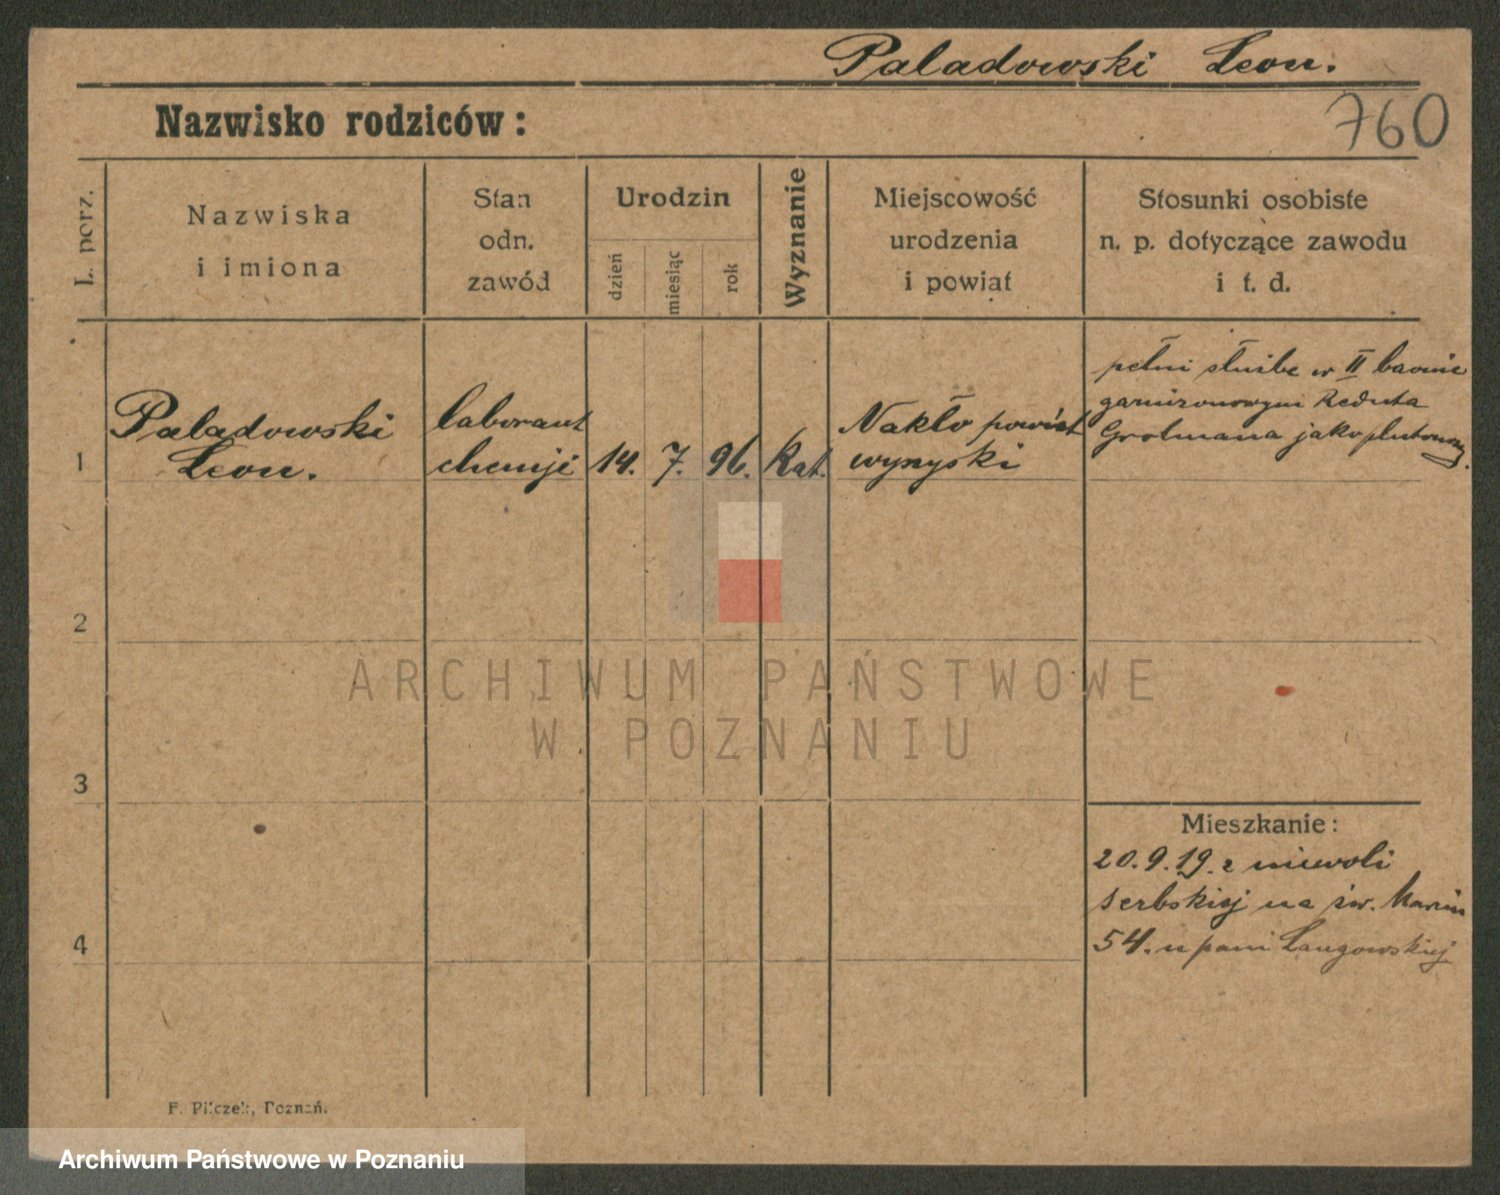 Paladowski Leon.
Nazwisko rodziców:
760
L. porz.
Nazwiska
i imiona
Stan
odn.
zawód
Urodzin
dzień
miesiąc
rok
Wyznanie
Miejscowość
urodzenia
i powiat
Stosunki osobiste
n. p. dotyczące zawodu
i t. d.
1
Paladowski
Leon.
laborant
chemji
14. 7. 96.
Kat.
Nakło powiat
wyrzyski
pełni służbe w II baonie
garnizonowym Reduta
Grolmana jako plutonowy.
2
3
4
Mieszkanie:
20.9.19. z niewoli
serbskiej na św. Marcin
54. u pani Langowskiej
F. Pilczek, Poznań.
ARCHIWUM PAŃSTWOWE
W POZNANIU
Archiwum Państwowe w Poznaniu